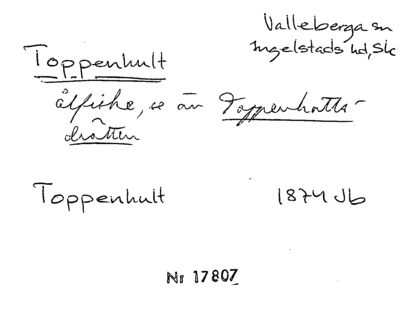 Valleberga sn
Ingelstads hd, Sk
Toppenhult
ålfiske, se än Toppenhatts-
drätten
Toppenhult 1874 Jb
Nr 17807